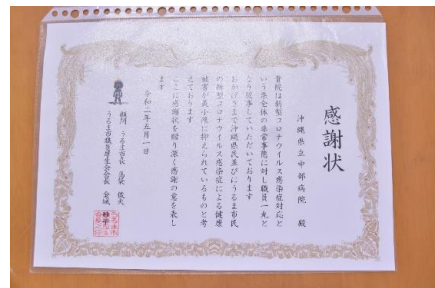 感謝状
沖縄県立中部病院 殿
貴院は新型コロナウイルス感染症対応と
いう県全体の非常事態に対し職員一丸と
なり従事していただいております
おかげさまで沖縄県民並びにうるま市民
の新型コロナウイルス感染症による健康
被害が最小限に抑えられているものと考
えております
ここに感謝状を贈り深く感謝の意を表し
ます
令和二年五月一日
顧問 うるま市長 島袋 俊夫
うるま市職員厚生会会長 金城